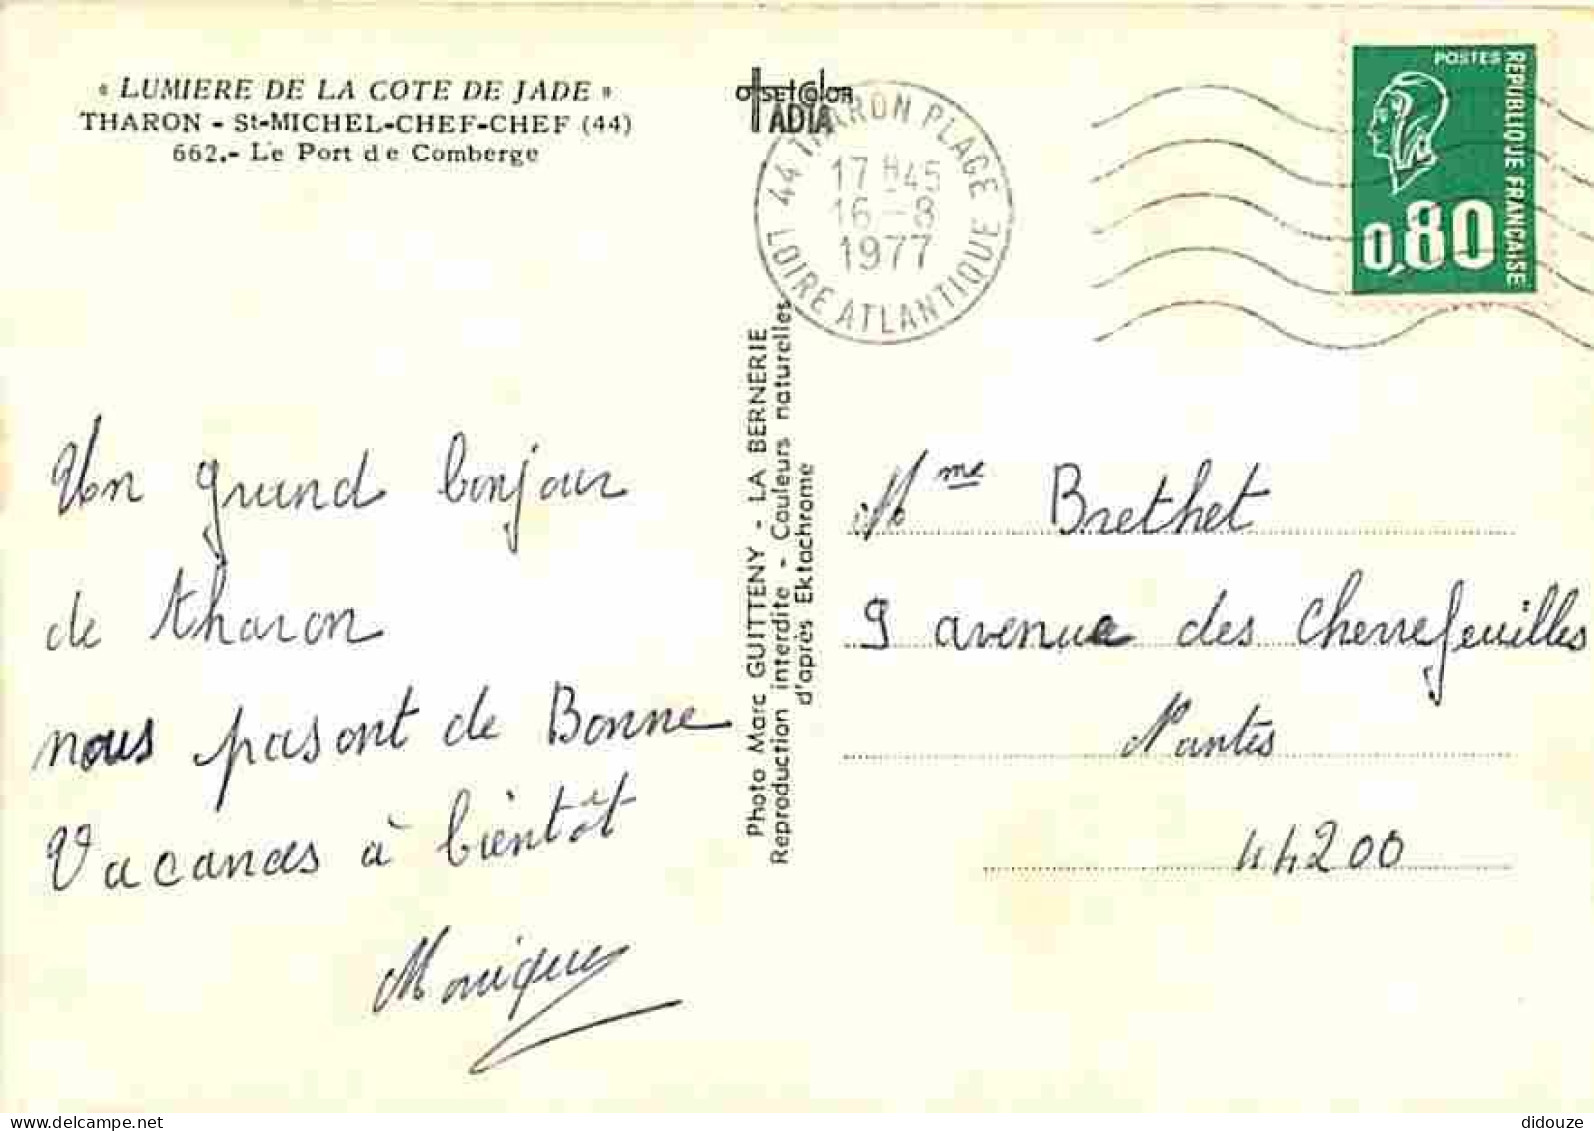 « LUMIERE DE LA COTE DE JADE »
THARON - St-MICHEL-CHEF-CHEF (44)
662.- Le Port de Comberge
offset color
IADIA
44 THARON PLAGE
17 H45
16-8
1977
LOIRE ATLANTIQUE
POSTES
REPUBLIQUE FRANCAISE
0,80
Un grand bonjour
de tharon
nous pasont de Bonne
Vacances à bientôt
Monique
Photo Marc GUITTENY - LA BERNERIE
Reproduction interdite - Couleurs naturelles
d'après Ektachrome
Mme Brethet
9 avenue des Chevrefeuilles
Nantes
44200
delcampe.net
didouze